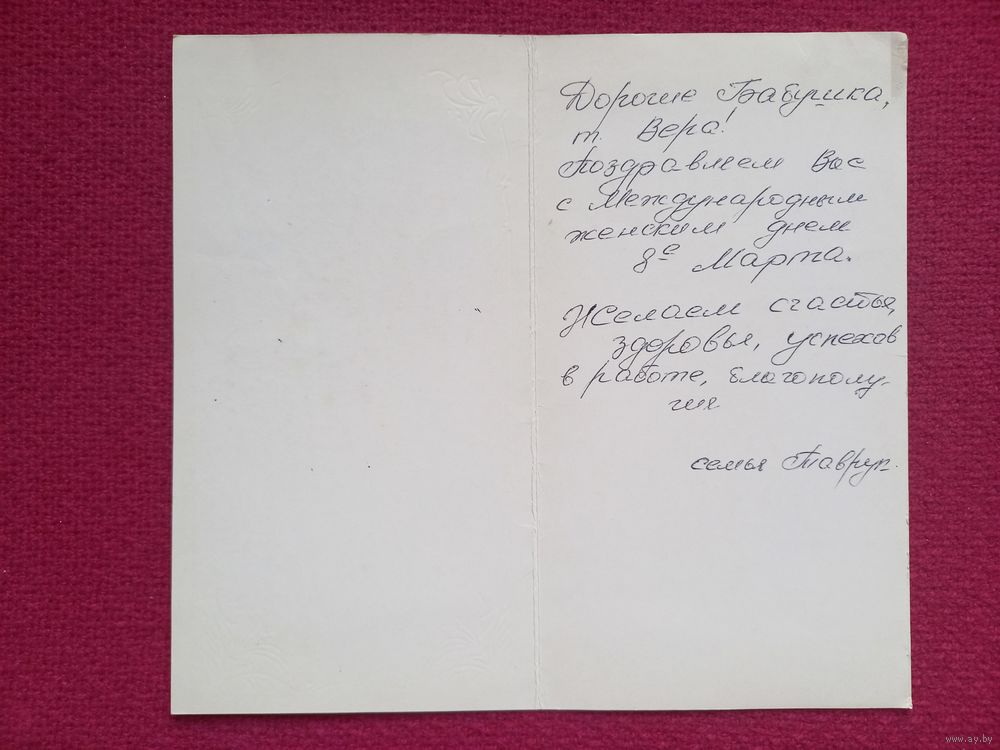 Дорогие Бабушка,
т. Вера!
Поздравляем Вас
с Международным
женским днем
8е Марта.
Желаем счастья,
здоровья, успехов
в работе, благополу-
чия
семья Тавруп.
www.ay.by